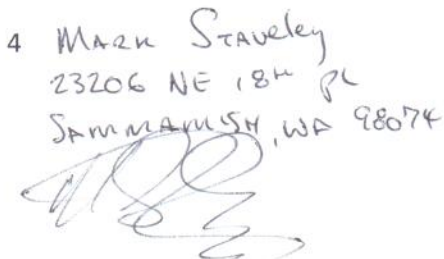 4 Mark Staveley
23206 NE 18th PL
Sammamish, WA 98074